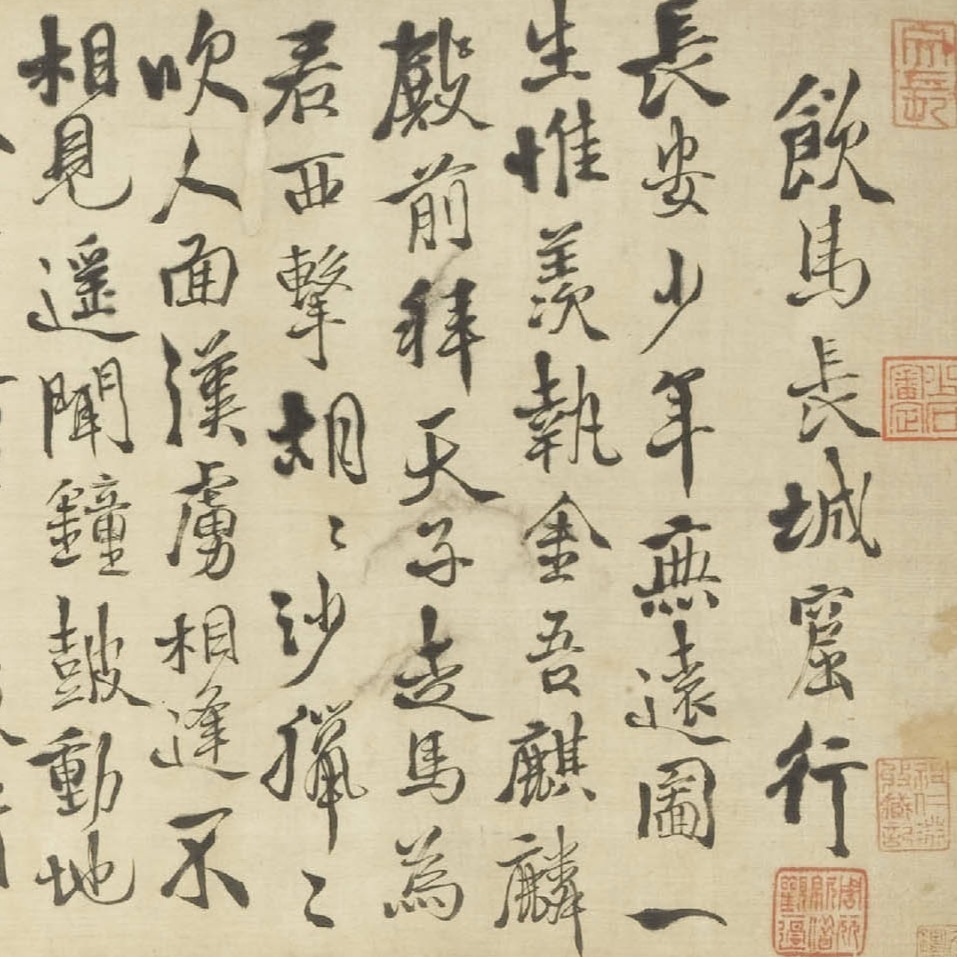 飲馬長城窟行
長安少年無遠圖一
生惟羨執金吾麒麟
殿前拜天子走馬為
君西擊胡〻沙獵〻
吹人面漢虜相逢不
相見遙聞鐘鼓動地